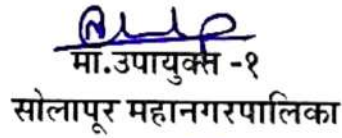 मा.उपायुक्त -१
सोलापूर महानगरपालिका